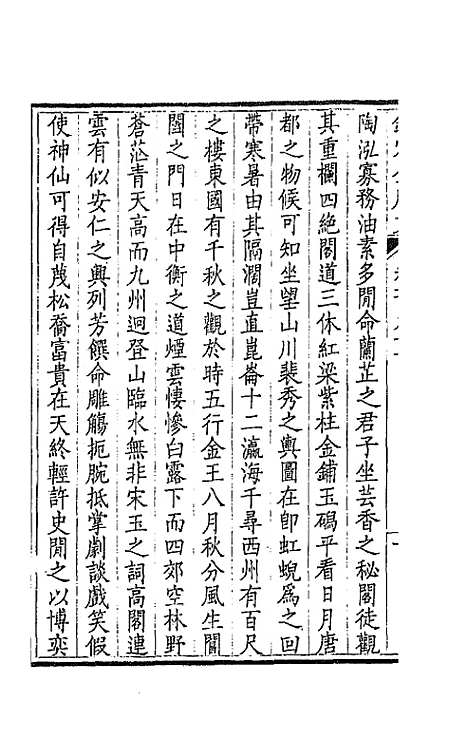 陶泓寡務油素多閒命蘭芷之君子坐芸香之秘閣徒觀
其重欄四絶閣道三休紅梁紫柱金鋪玉磶平看日月唐
都之物候可知坐望山川裴秀之輿圖在即虹蜺為之回
帶寒暑由其隔濶豈直崑崙十二瀛海千尋西州有百尺
之樓東國有千秋之觀於時五行金王八月秋分風生閶
闔之門日在中衡之道煙雲悽慘白露下而四郊空林野
蒼茫青天高而九州迥登山臨水無非宋玉之詞高閣連
雲有似安仁之興列芳饌命雕觴扼腕抵掌劇談戲笑假
使神仙可得自茂松喬富貴在天終輕許史閒之以博奕